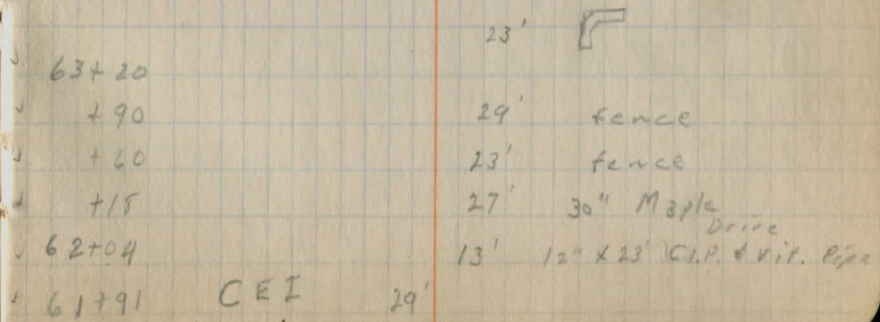 23'
63+20
+90 29' fence
+60 23' fence
+18 27' 30" Maple
Drive
62+04 13' 12" X 23' C.I.P. & Vit. Pipe
61+91 CEI 29'